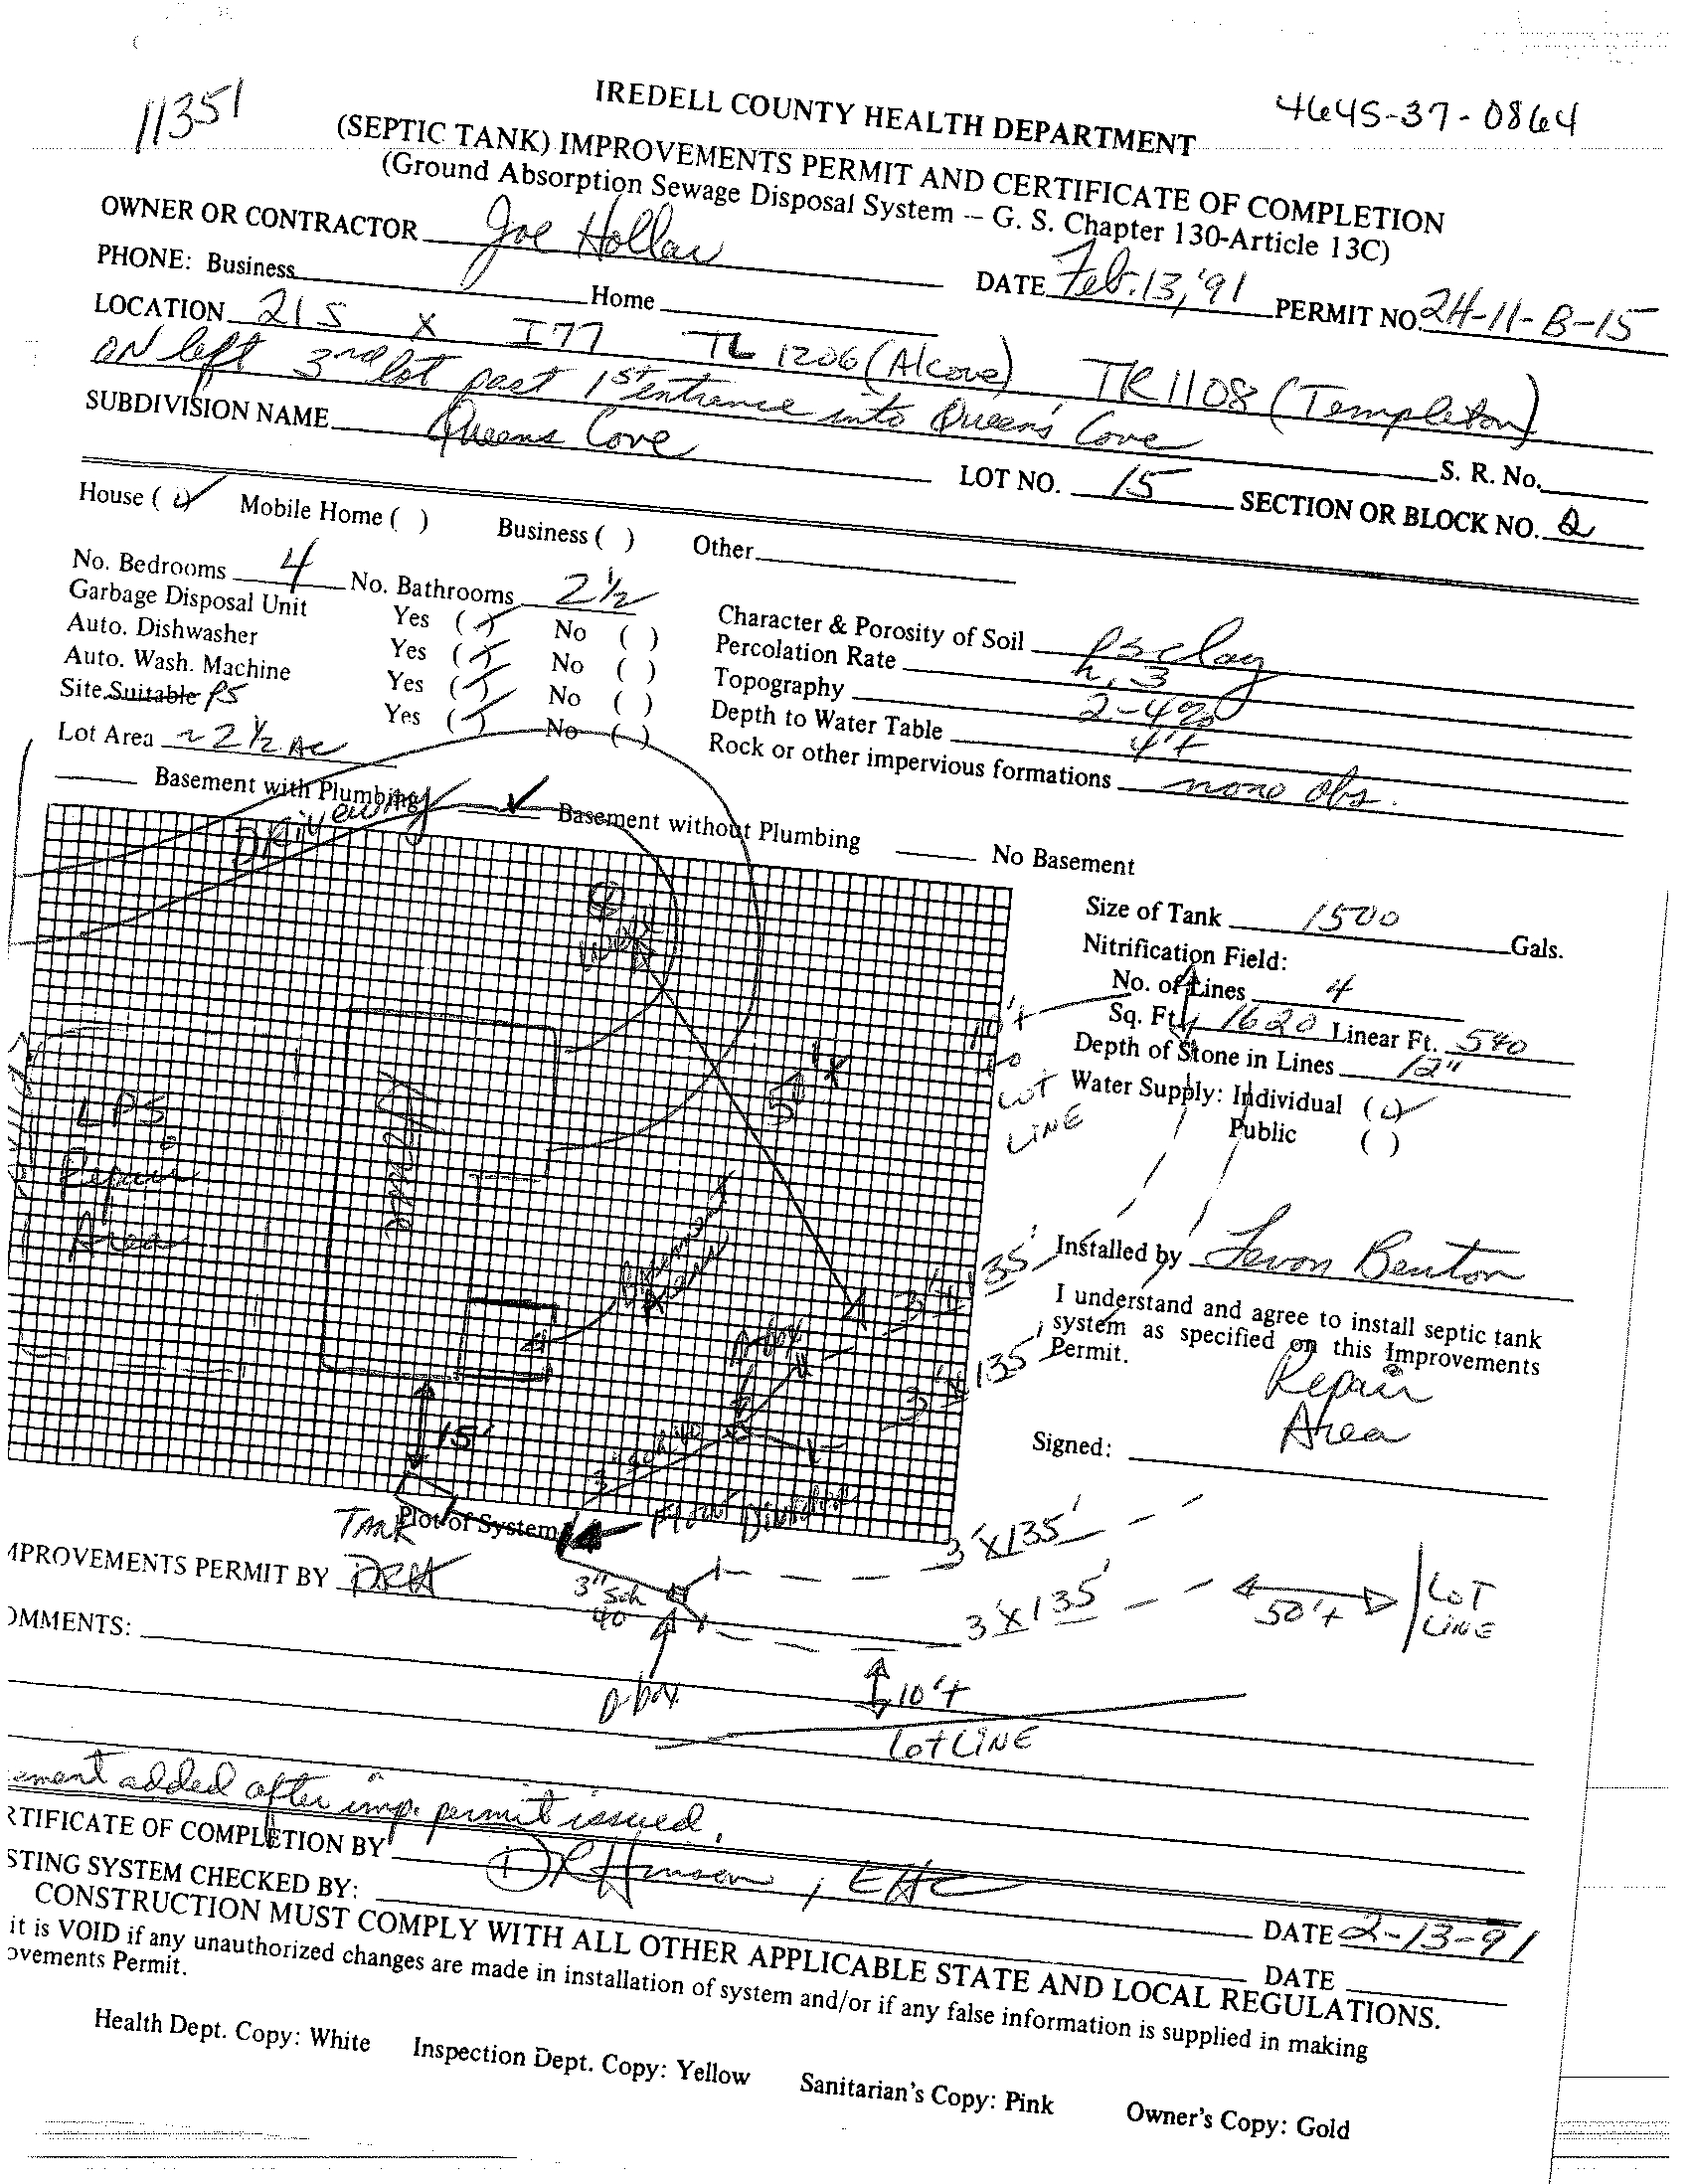 11351
IREDELL COUNTY HEALTH DEPARTMENT
4645-37-0864
(SEPTIC TANK) IMPROVEMENTS PERMIT AND CERTIFICATE OF COMPLETION
(Ground Absorption Sewage Disposal System -- G. S. Chapter 130-Article 13C)
OWNER OR CONTRACTOR Joe Hollar
DATE Feb. 13, '91 PERMIT NO. 2H-11-B-15
PHONE: Business Home
LOCATION 21 S X I 77 TL 1206 (Alcove) TR 1108 (Templeton)
ON left 3rd lot past 1st entrance into Queen's Cove
S. R. No.
SUBDIVISION NAME Queens Cove LOT NO. 15 SECTION OR BLOCK NO. 2
House (✓) Mobile Home ( ) Business ( ) Other
No. Bedrooms 4 No. Bathrooms 2 1/2
Garbage Disposal Unit Yes (✓) No ( )
Auto. Dishwasher Yes (✓) No ( )
Auto. Wash. Machine Yes (✓) No ( )
Site Suitable PS Yes (✓) No ( )
Lot Area ~2 1/2 Ac
Character & Porosity of Soil PS clay
Percolation Rate .3
Topography 2-4%
Depth to Water Table 4'+
Rock or other impervious formations none obs.
Basement with Plumbing ✓ Basement without Plumbing No Basement
Driveway
Well
50'+
LPS
Repair
Area
Basement
D-box
15'
3" sch 40
Flow Divider
TANK
Plot of System
Size of Tank 1500 Gals.
Nitrification Field:
No. of Lines 4
Sq. Ft. 1620 Linear Ft. 540
Depth of Stone in Lines 12"
Water Supply: Individual (✓)
Public ( )
10'+
to
LOT
LINE
3'X135'
3'X135'
Installed by Levon Benton
I understand and agree to install septic tank
system as specified on this Improvements
Permit.
Repair
Area
Signed:
3'X135'
3'X135'
50'+
LOT
LINE
3" Sch
40
D-box
10'+
Lot LINE
MPROVEMENTS PERMIT BY DRH
OMMENTS:
ement added after imp. permit issued.
RTIFICATE OF COMPLETION BY DRHinson, EHC DATE 2-13-91
STING SYSTEM CHECKED BY: DATE
CONSTRUCTION MUST COMPLY WITH ALL OTHER APPLICABLE STATE AND LOCAL REGULATIONS.
it is VOID if any unauthorized changes are made in installation of system and/or if any false information is supplied in making
ovements Permit.
Health Dept. Copy: White Inspection Dept. Copy: Yellow Sanitarian's Copy: Pink Owner's Copy: Gold